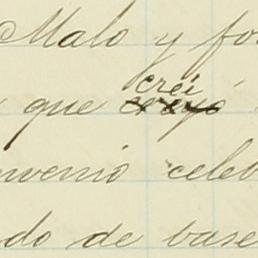 Malo y fo
crei
que creyó
nvenio celeb
do de base